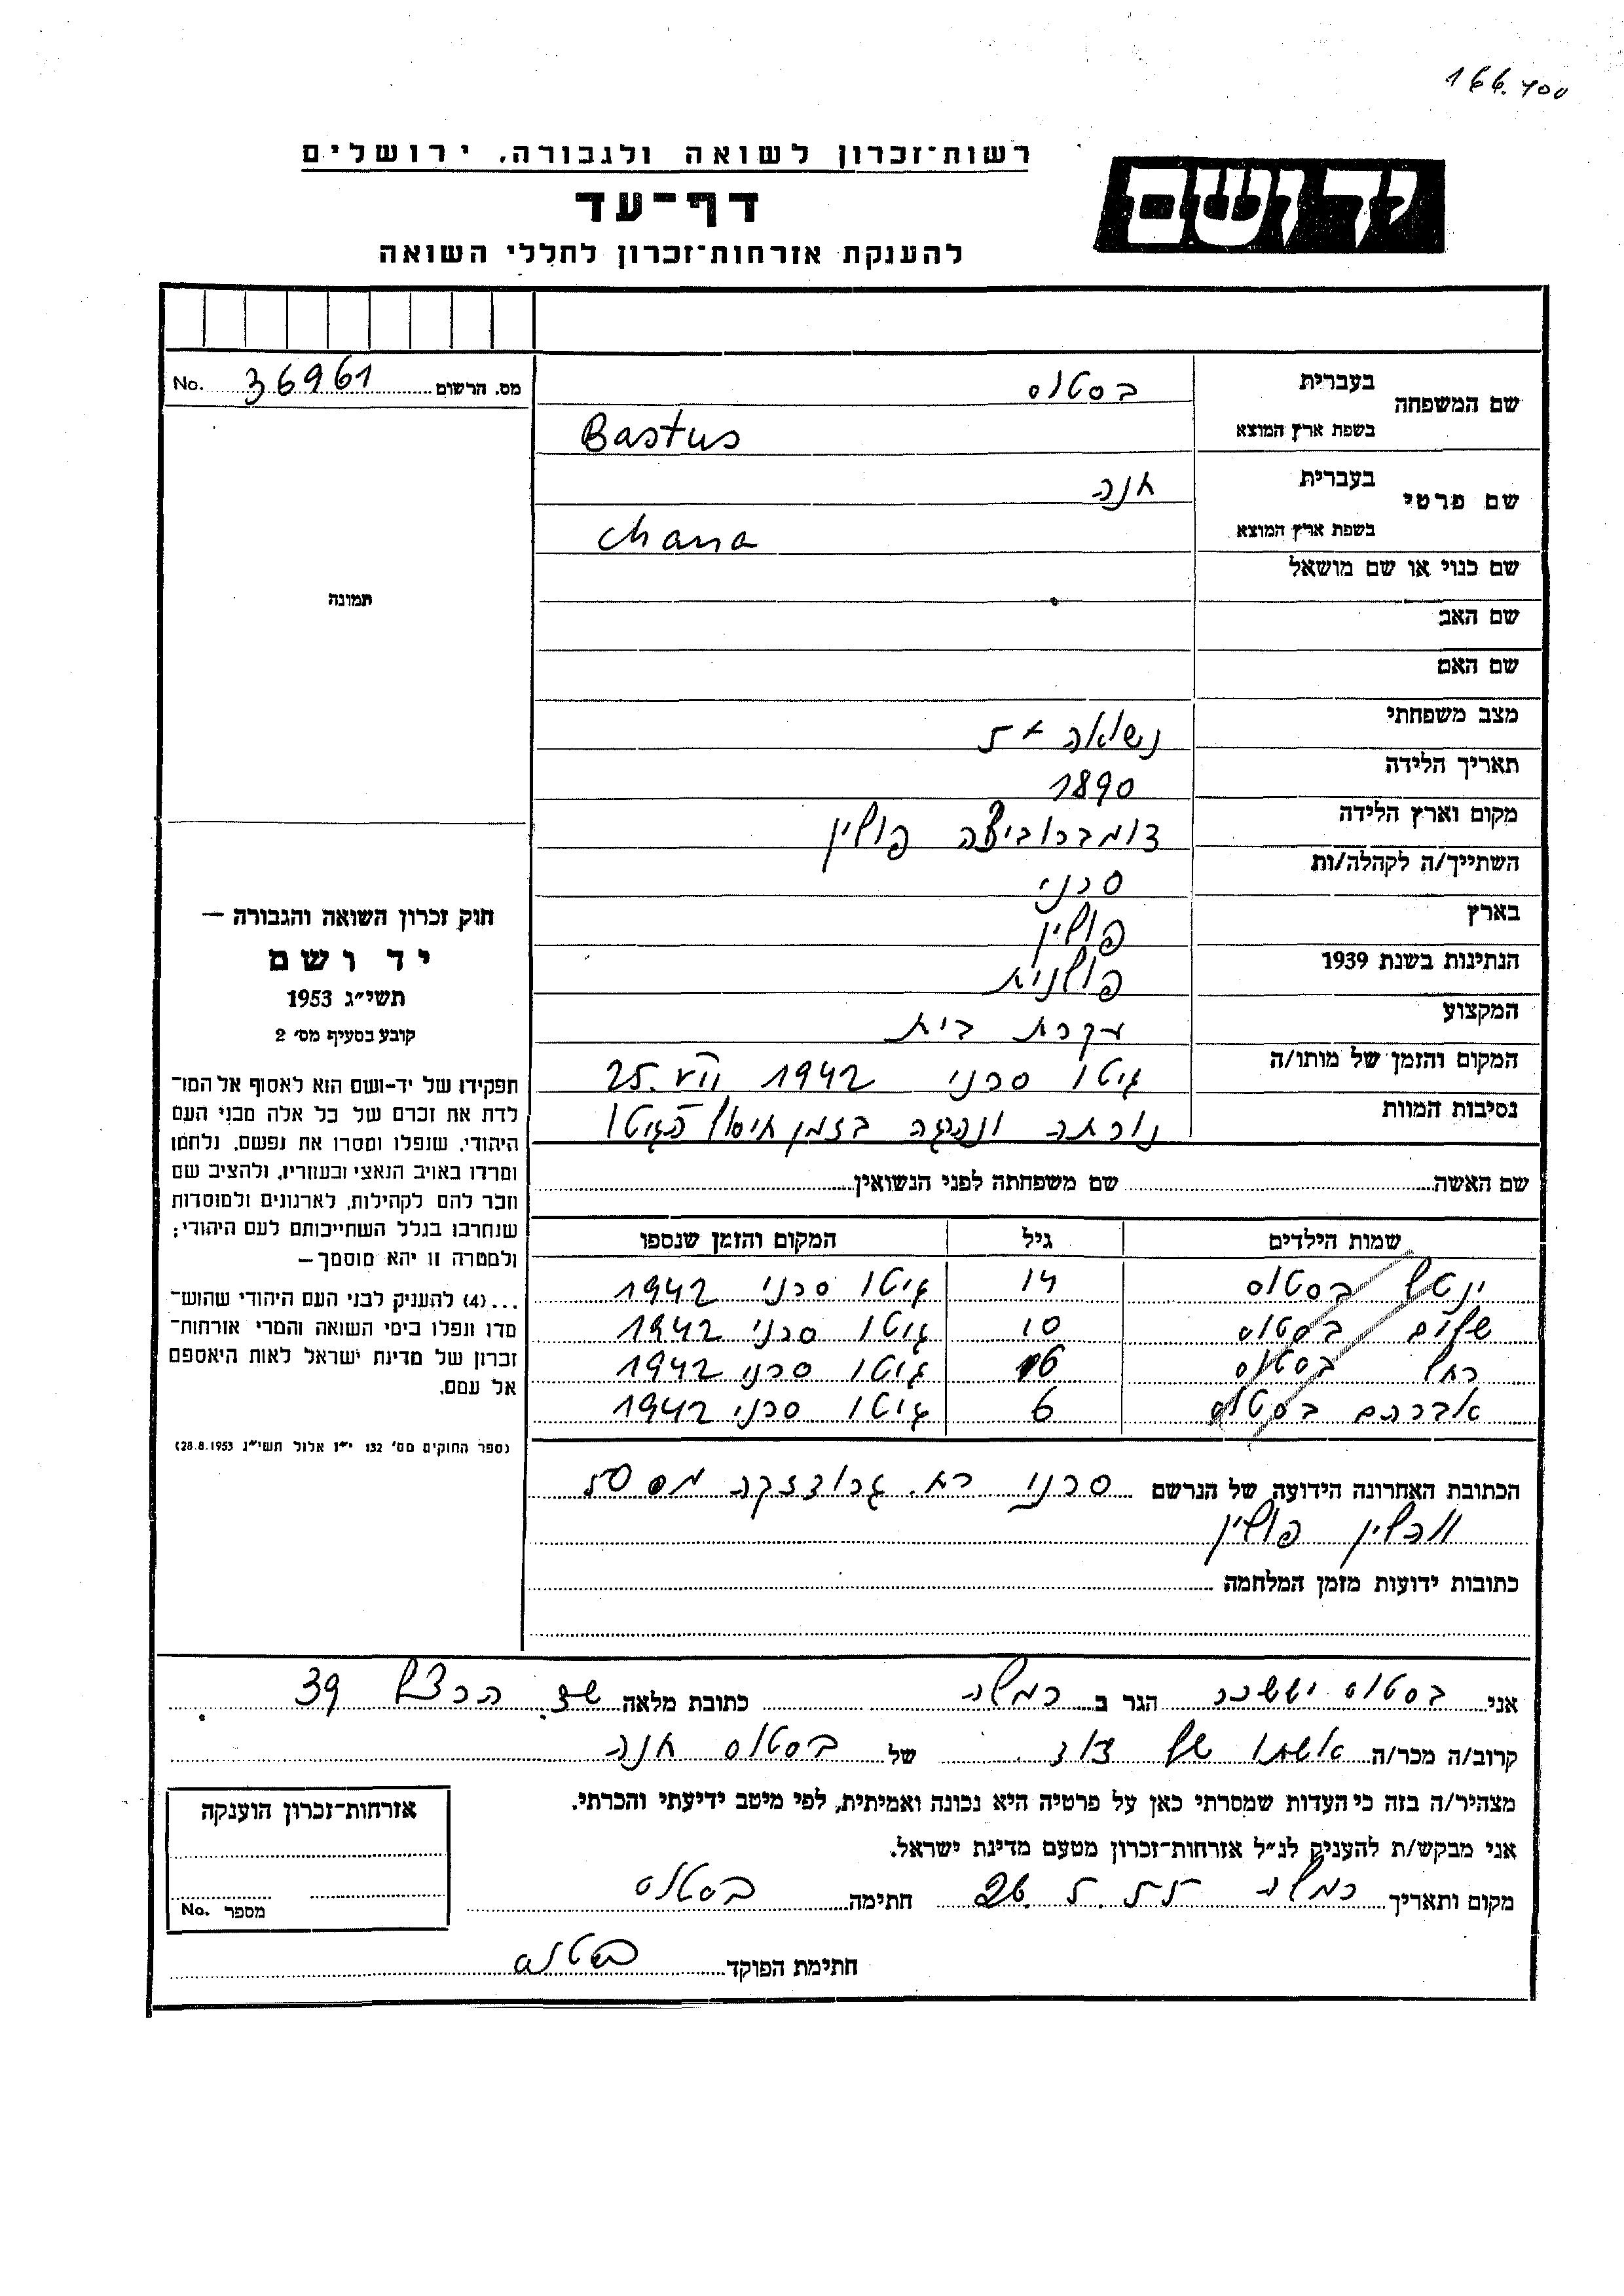 166.400
יד ושם
רשות־זכרון לשואה ולגבורה, ירושלים
דף־עד
להענקת אזרחות־זכרון לחללי השואה
מס. הרשום 36961 No.
שם המשפחה בעברית בסטוס
בשפת ארץ המוצא Bastus
שם פרטי בעברית חנה
בשפת ארץ המוצא Chana
שם כנוי או שם מושאל
שם האב
שם האם
מצב משפחתי נשואה +
תאריך הלידה 1890
מקום וארץ הלידה דומברוביצה פולין
השתייך/ה לקהלה/ות סרני
בארץ פולין
הנתינות בשנת 1939 פולנית
המקצוע עקרת בית
המקום והזמן של מותו/ה גיטו סרני 1942 25.VIII
נסיבות המוות נורתה ונהרגה בזמן חיסול הגיטו
שם האשה שם משפחתה לפני הנשואין
שמות הילדים גיל המקום והזמן שנספו
ינטל בסטוס 14 גיטו סרני 1942
שלום בסטוס 10 גיטו סרני 1942
רחל בסטוס 16 גיטו סרני 1942
אברהם בסטוס 6 גיטו סרני 1942
הכתובת האחרונה הידועה של הנרשם סרני רח.
ווהלין פולין
כתובות ידועות מזמן המלחמה
תמונה
חוק זכרון השואה והגבורה —
יד ושם
תשי״ג 1953
קובע בסעיף מס׳ 2
תפקידו של יד־ושם הוא לאסוף אל המו־
לדת את זכרם של כל אלה מבני העם
היהודי, שנפלו ומסרו את נפשם, נלחמו
ומרדו באויב הנאצי ובעוזריו, ולהציב שם
וזכר להם לקהילות, לארגונים ולמוסדות
שנחרבו בגלל השתייכותם לעם היהודי;
ולמטרה זו יהא מוסמך —
...(4) להעניק לבני העם היהודי שהוש־
מדו ונפלו בימי השואה והמרי אזרחות־
זכרון של מדינת ישראל לאות היאספם
אל עמם.
(ספר החוקים מס׳ 132 י״ז אלול תשי״ג 28.8.1953)
אני בסטוס יששכר הגר ב רמלה כתובת מלאה שד. הרצל 39
קרוב/ה מכר/ה אשתו של דוד של בסטוס חנה
מצהיר/ה בזה כי העדות שמסרתי כאן על פרטיה היא נכונה ואמיתית, לפי מיטב ידיעתי והכרתי.
אני מבקש/ת להעניק לנ״ל אזרחות־זכרון מטעם מדינת ישראל.
מקום ותאריך רמלה חתימה בסטוס
חתימת הפוקד
אזרחות־זכרון הוענקה
מספר No.